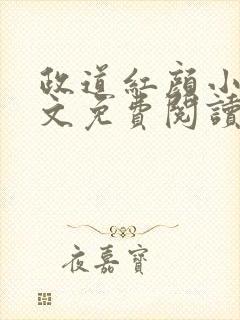 政道紅顏小
文免費閱讀
夜嘉寶